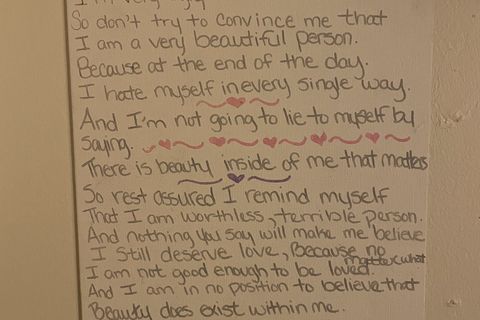 So don't try to convince me that
I am a very beautiful person.
Because at the end of the day.
I hate myself in every single way.
And I'm not going to lie to myself by
saying.
There is beauty inside of me that matters
So rest assured I remind myself
That I am worthless, terrible person.
And nothing you say will make me believe
I still deserve love, Because no
matter what
I am not good enough to be loved.
And I am in no position to believe that
Beauty does exist within me.